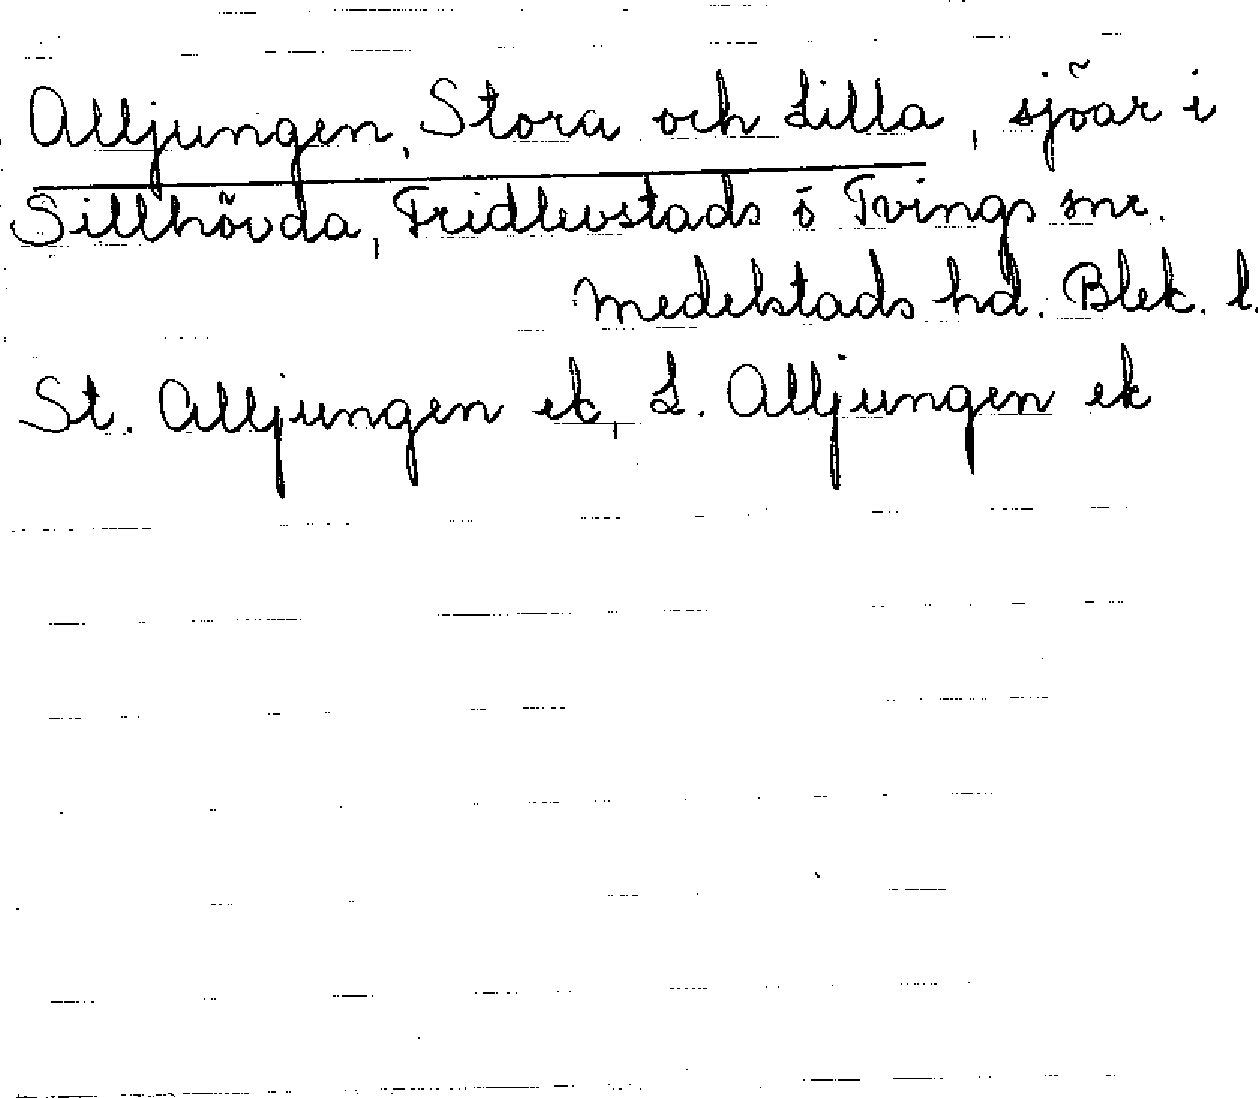 Alljungen, Stora och Lilla, sjöar i
Sillhövda, Fridlevstads o Tvings snr.
Medelstads hd. Blek. l.
St. Alljungen ek, L. Alljungen ek